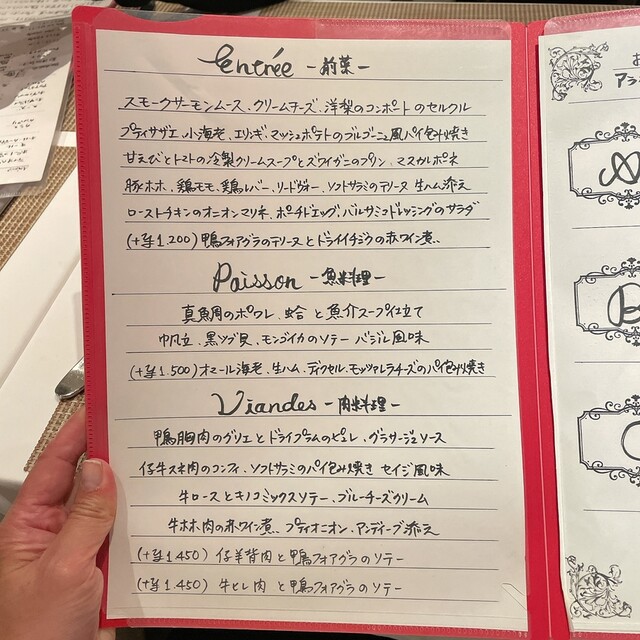 Entrée -前菜-
スモークサーモンムース、クリームチーズ、洋梨のコンポートのセルクル
プティサザエ、小海老、エリンギ、マッシュポテトのブルゴーニュ風パイ包み焼き
甘えびとトマトの冷製クリームスープとズワイガニのプリン、マスカルポーネ
豚ホホ、鶏モモ、鶏レバー、リードヴォー、ソフトサラミのテリーヌ 生ハム添え
ローストチキンのオニオンマリネ、ポーチドエッグ、バルサミコドレッシングのサラダ
(+¥1.200) 鴨フォアグラのテリーヌとドライイチジクの赤ワイン煮
Poisson -魚料理-
真鯛のポワレ、蛤 と魚介スープ仕立て
帆立、黒ツブ貝、モンゴイカのソテー バジル風味
(+¥1.500) オマール海老、生ハム、デュクセル、モッツァレラチーズのパイ包み焼き
Viandes -肉料理-
鴨胸肉のグリエとドライプラムのピュレ、グラサージュソース
仔牛スネ肉のコンフィ、ソフトサラミのパイ包み焼き セイジ風味
牛ロースとキノコミックスソテー、ブルーチーズクリーム
牛ホホ肉の赤ワイン煮、プティオニオン、アンディーブ添え
(+¥1.450) 仔羊背肉と鴨フォアグラのソテー
(+¥1.450) 牛ヒレ肉 と鴨フォアグラのソテー
お
アラ
A
B